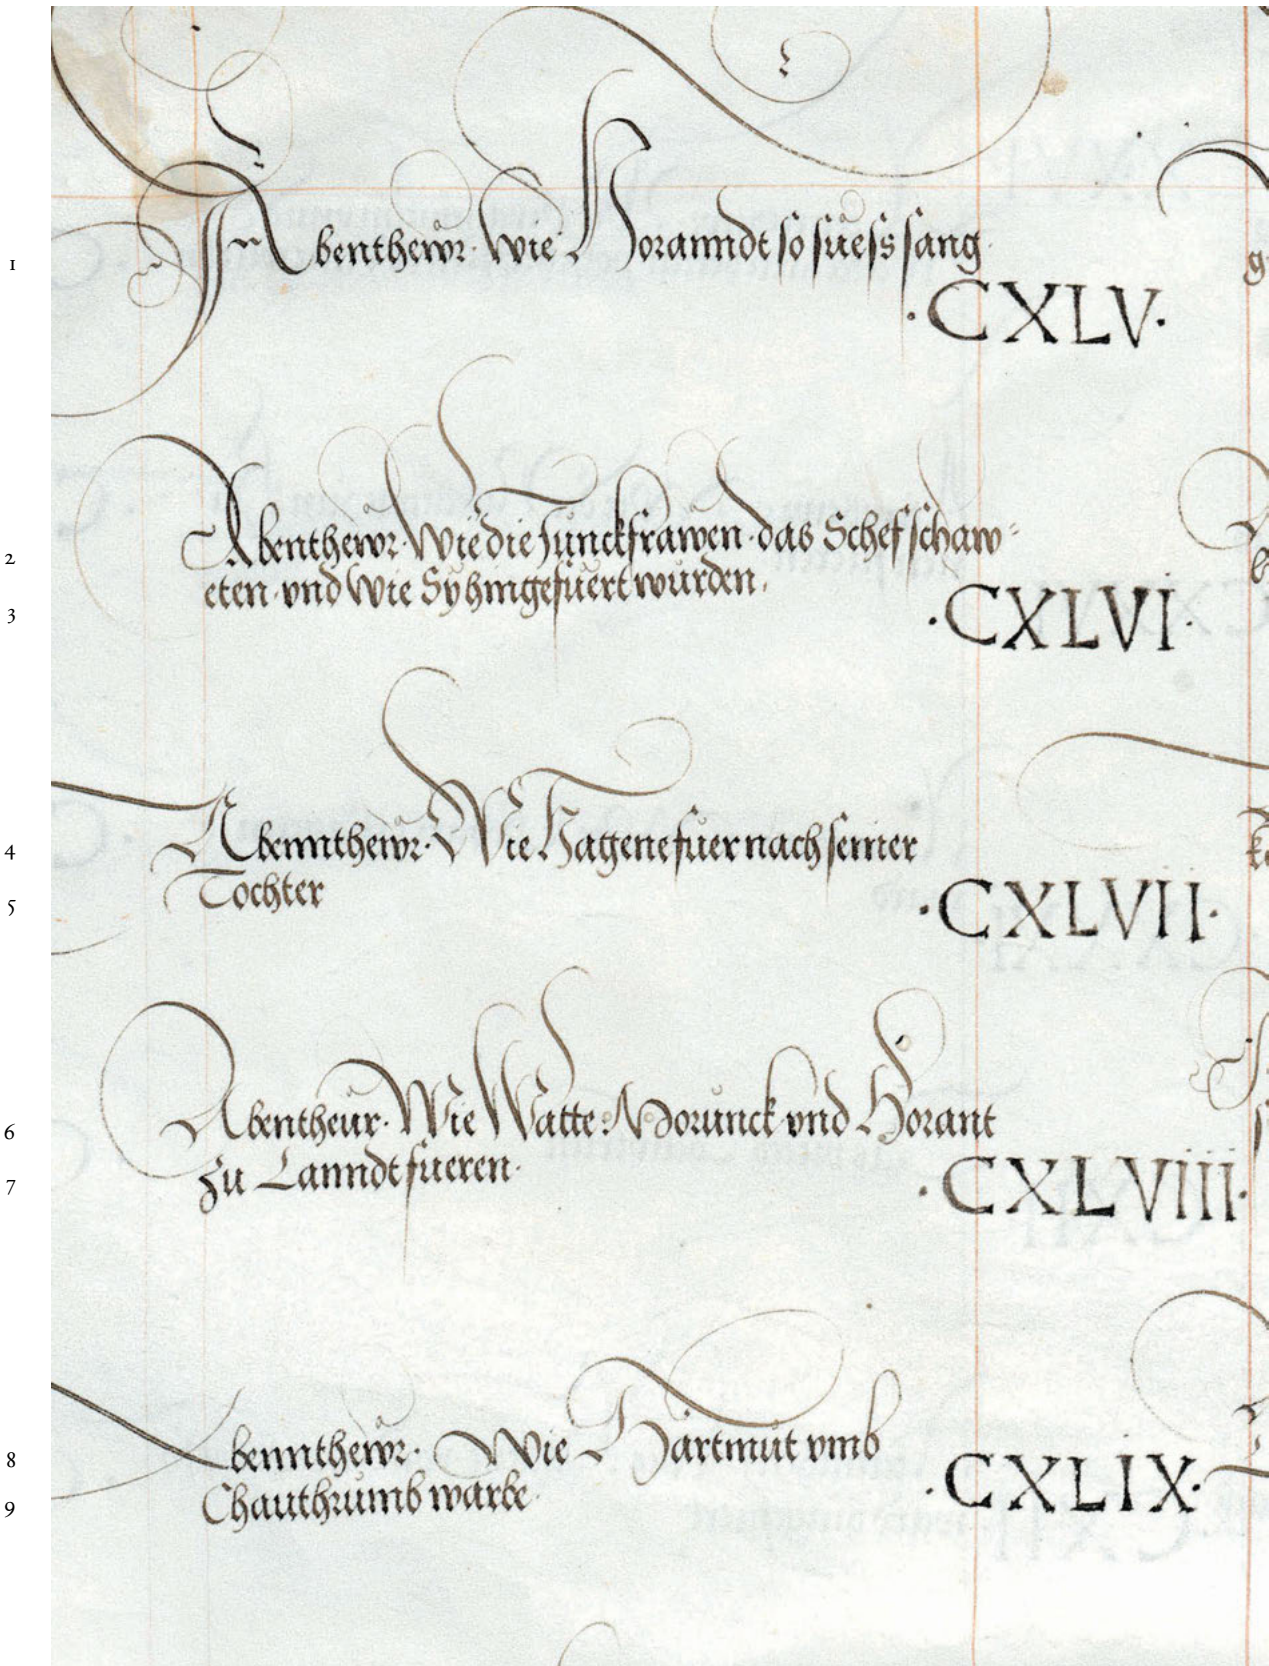 1 Abenthewr· Wie Horanndt so suess sang
·CXLV·
2 Abenthewr· Wie die Junckfrawen· das Schef schaw⸗
3 eten· vnd wie Sy hingefuert wurden·
·CXLVI·
4 Abenntheẃr· Wie Hagene fuer nach seiner
5 Tochter
·CXLVII·
6 Abentheur· Wie Watte: Morunck vnd Horant
7 zu Lanndt fueren·
·CXLVIII·
8 Abennthewr· Wie Hartmut vmb
9 Chauthrumb warbe·
·CXLIX·